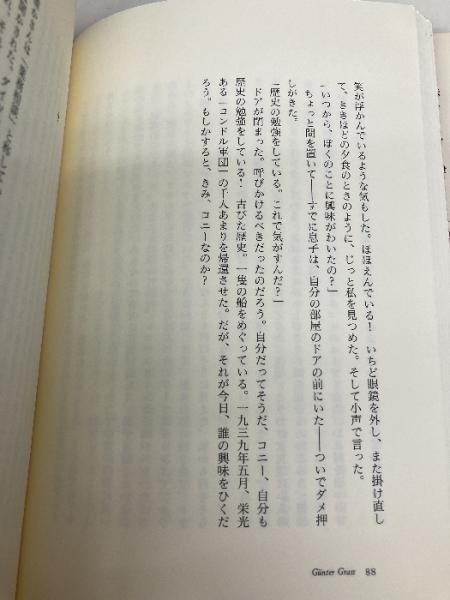 笑が浮かんでいるような気もした。ほほえんでいる！　いちど眼鏡を外し、また掛け直し
て、さきほどの夕食のときのように、じっと私を見つめた。そして小声で言った。
「いつから、ぼくのことに興味がわいたの？」
ちょっと間を置いて――すでに息子は、自分の部屋のドアの前にいた――ついでダメ押
しがきた。
「歴史の勉強をしている。これで気がすんだ？」
ドアが閉まった。呼びかけるべきだったのだろう。自分だってそうだ、コニー、自分も
歴史の勉強をしている！　古びた歴史。一隻の船をめぐっている。一九三九年五月、栄光
ある「コンドル軍団」の千人あまりを帰還させた。だが、それが今日、誰の興味をひくだ
ろう。もしかすると、きみ、コニーなのか？
Günter Grass 88